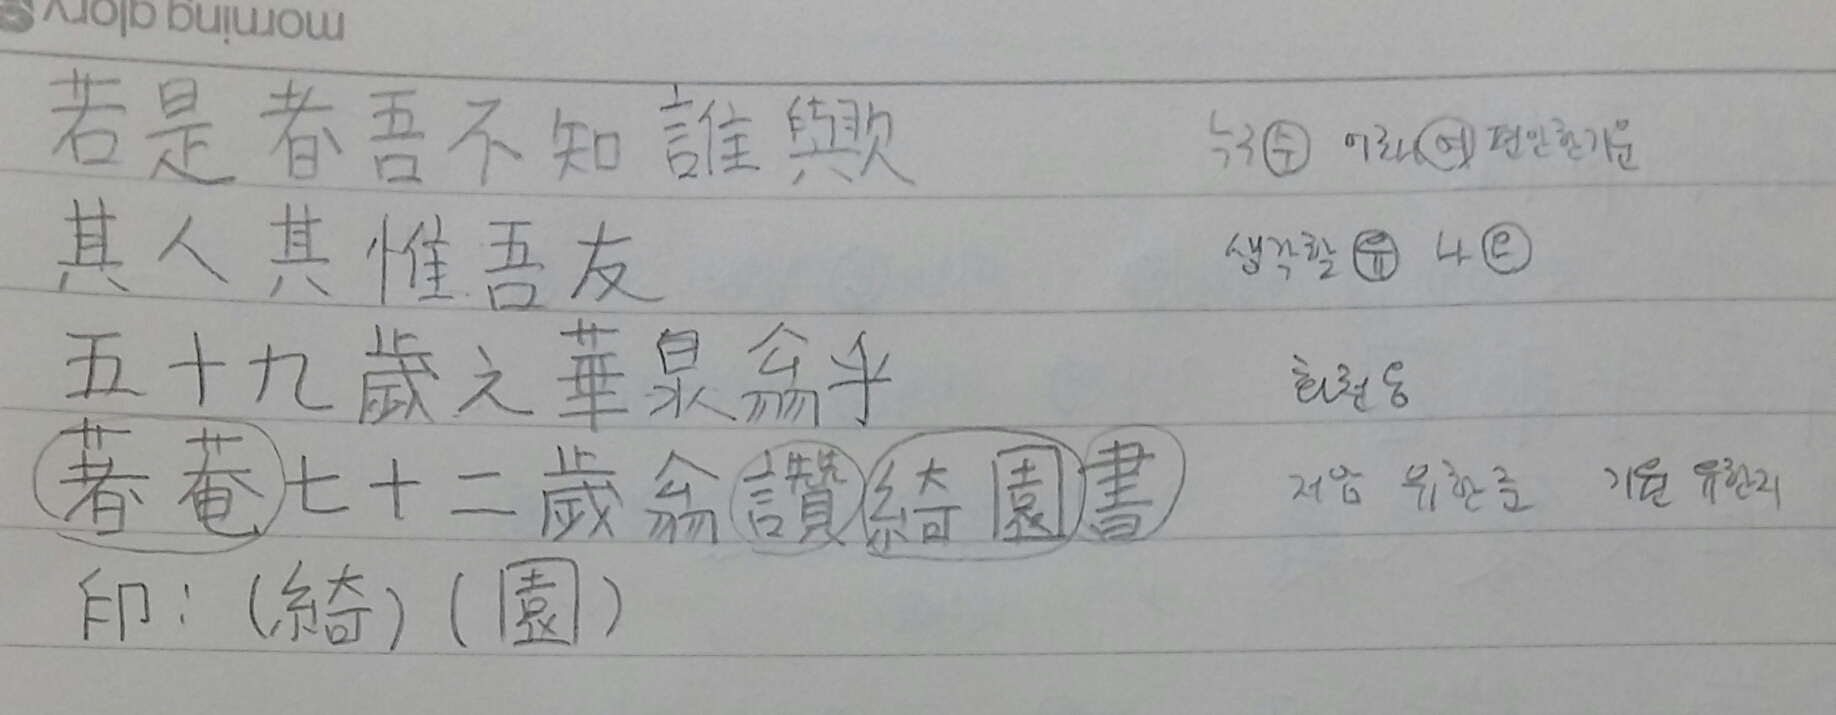 morning glory
若是者吾不知誰歟 누구 수 어조사 여 편안한 기운
其人其惟吾友 생각할 유 나 오
五十九歲之華泉翁乎 화천옹
著菴七十二歲翁讚綺園書 저암 유한준 기원 유한지
印:(綺)(園)